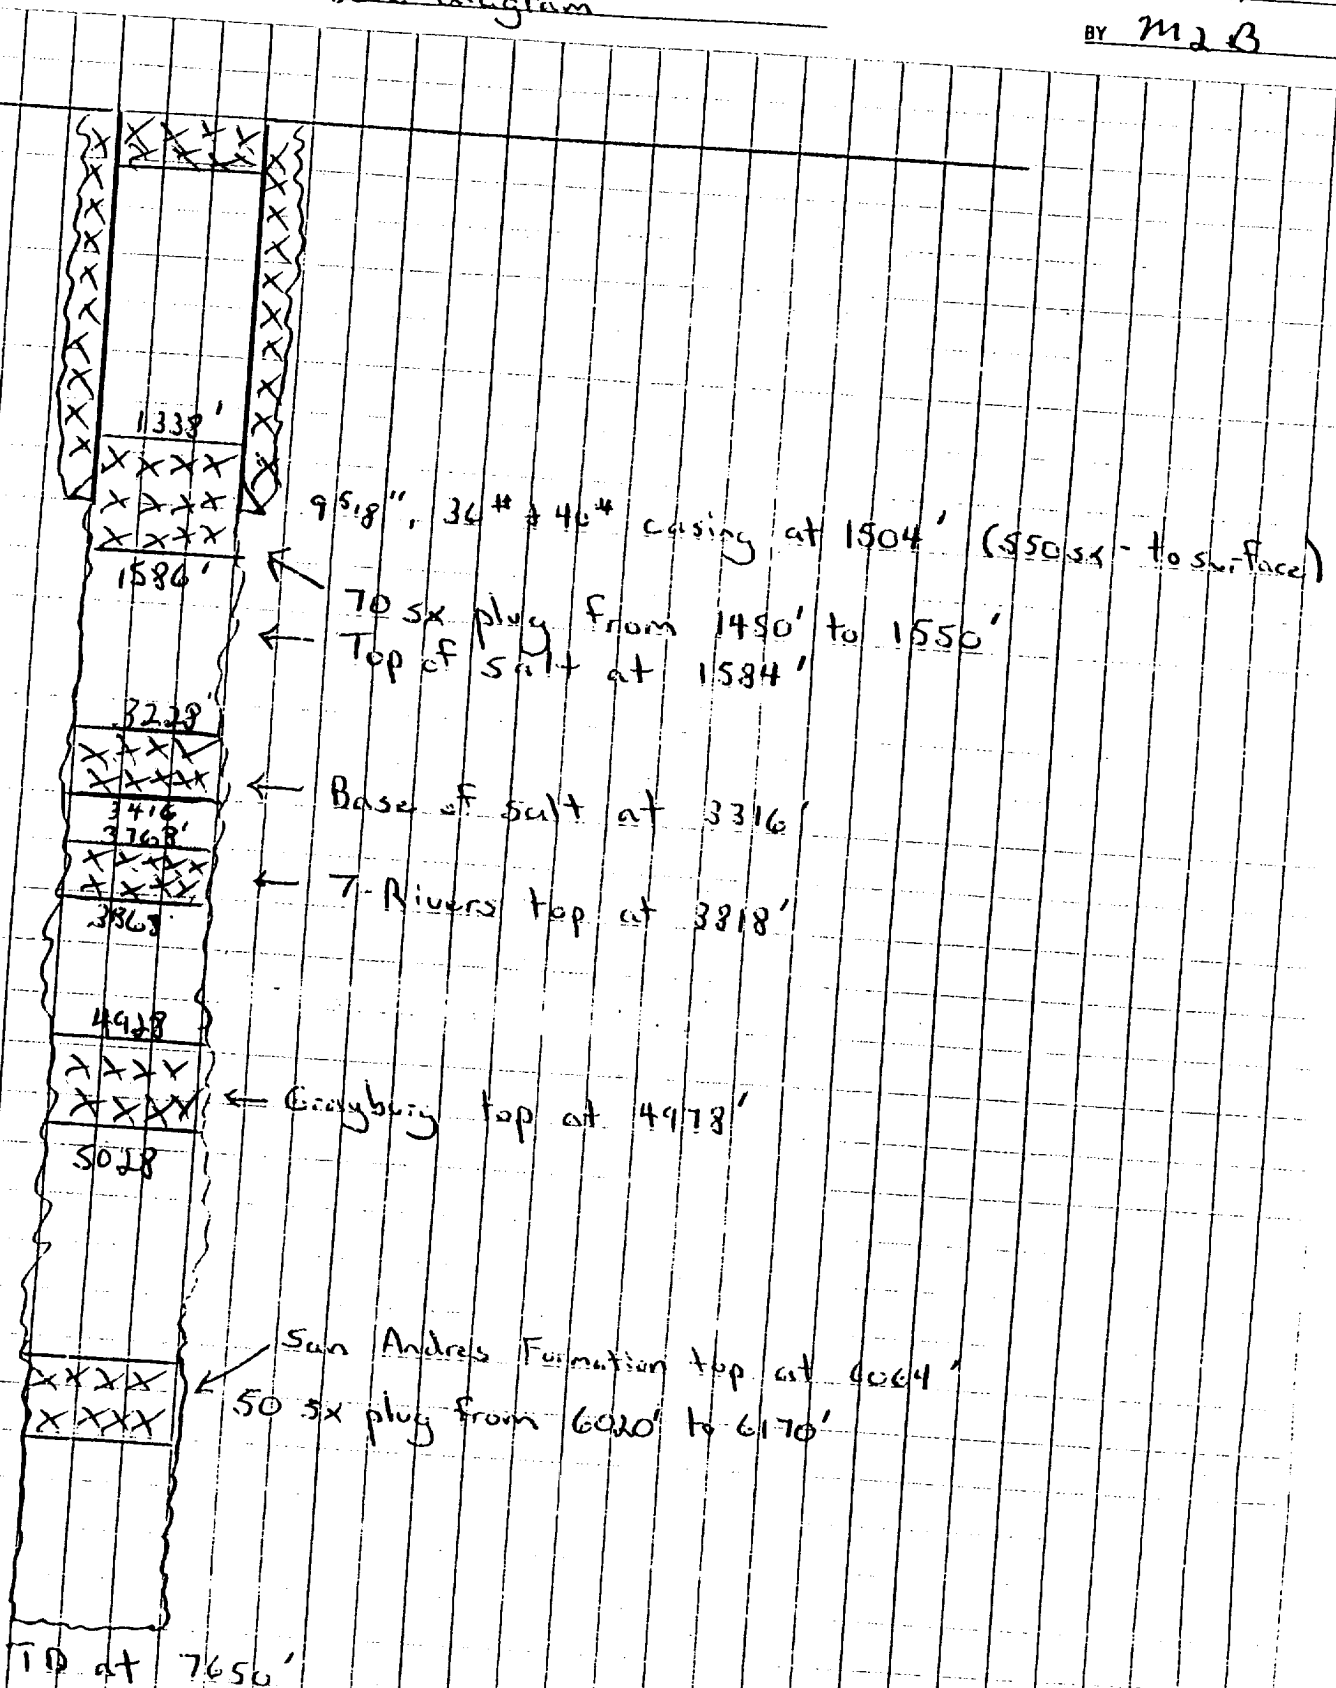 Diagram
BY M2B
1338'
9 5/8", 36# & 40# casing at 1504' (550sx - to surface)
1586'
70 sx plug from 1450' to 1550'
Top of salt at 1584'
3228'
Base of salt at 3316'
3416
3768'
7-Rivers top at 3818'
3868'
4928
Grayburg top at 4978'
5028
San Andres Formation top at 6064'
50 sx plug from 6020' to 6170'
TD at 7650'